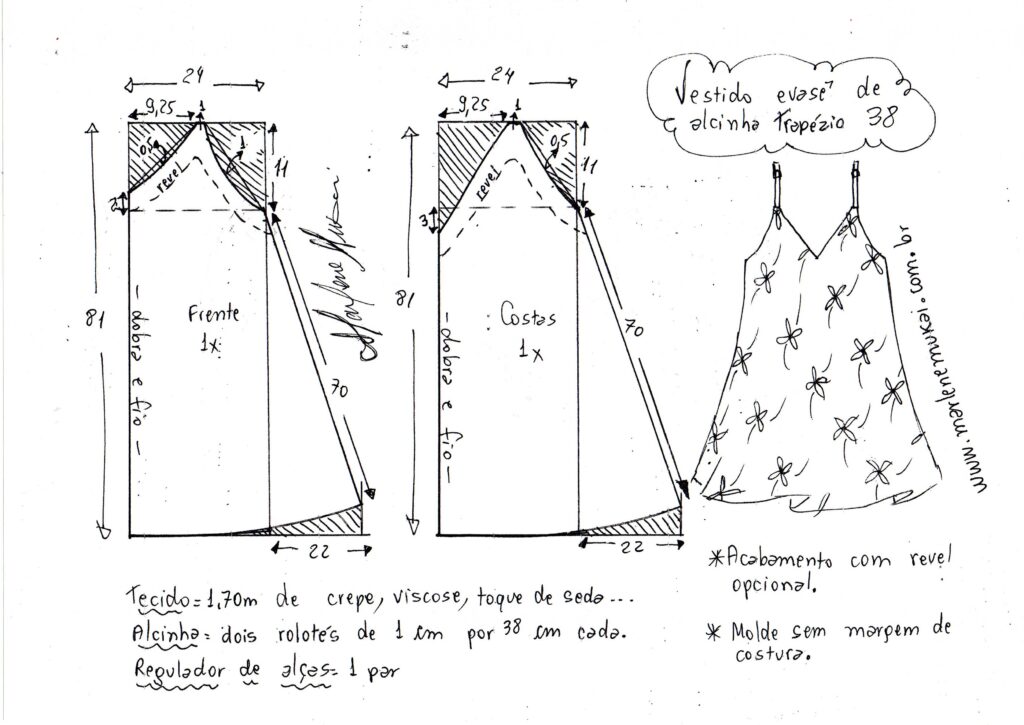 Vestido evasê de
alcinha Trapézio 38
24
9,25
1
0,5
1
revel
11
2
81
Frente
1x
-dobra e fio-
70
22
Marlene Mukai
24
9,25
1
0,5
revel
11
3
81
Costas
1x
-dobra e fio-
70
22
www.marlenemukai.com.br
*Acabamento com revel
opcional.
* Molde sem margem de
costura.
Tecido=1,70m de crepe, viscose, toque de seda...
Alcinha= dois rolotés de 1 cm por 38 cm cada.
Regulador de alças= 1 par